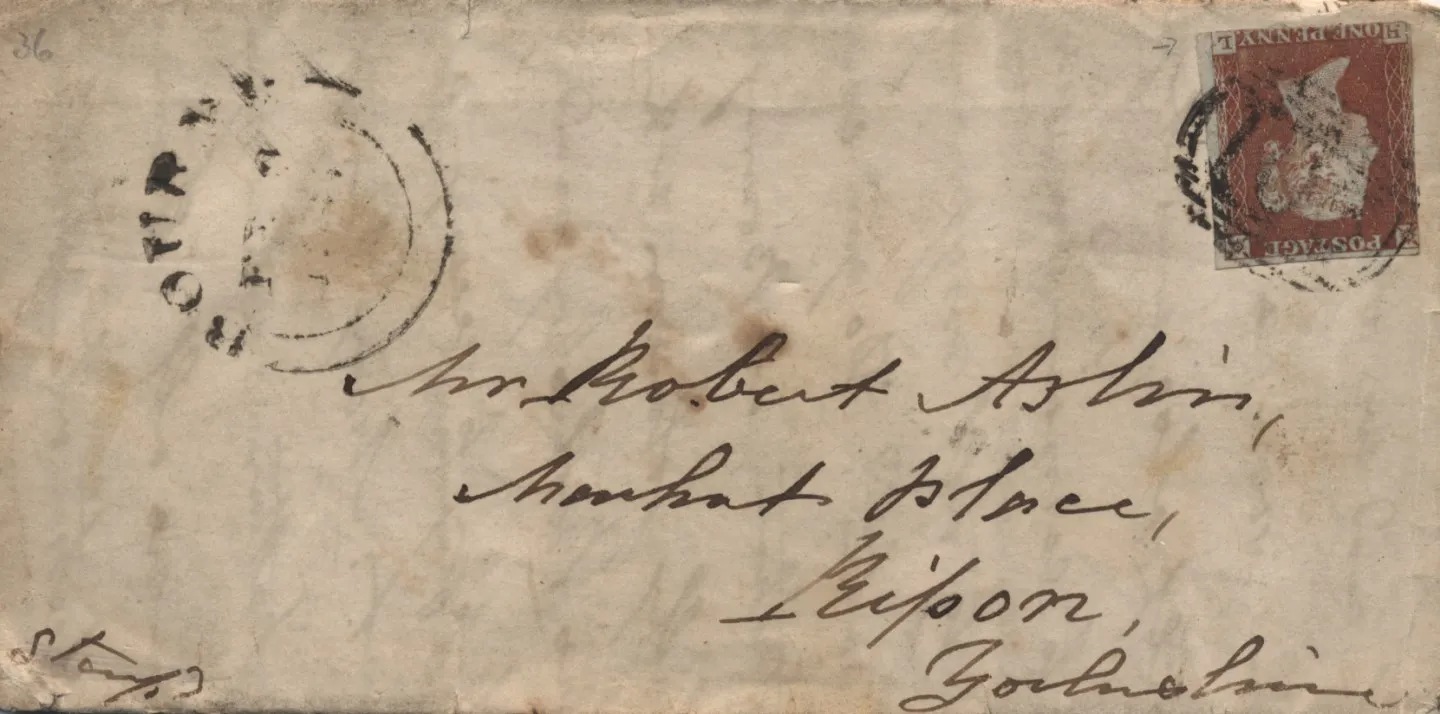 36
ONE PENNY
POSTAGE
Mr Robert Ashin,
Market Place,
Ripon,
Yorkshire
Stamp